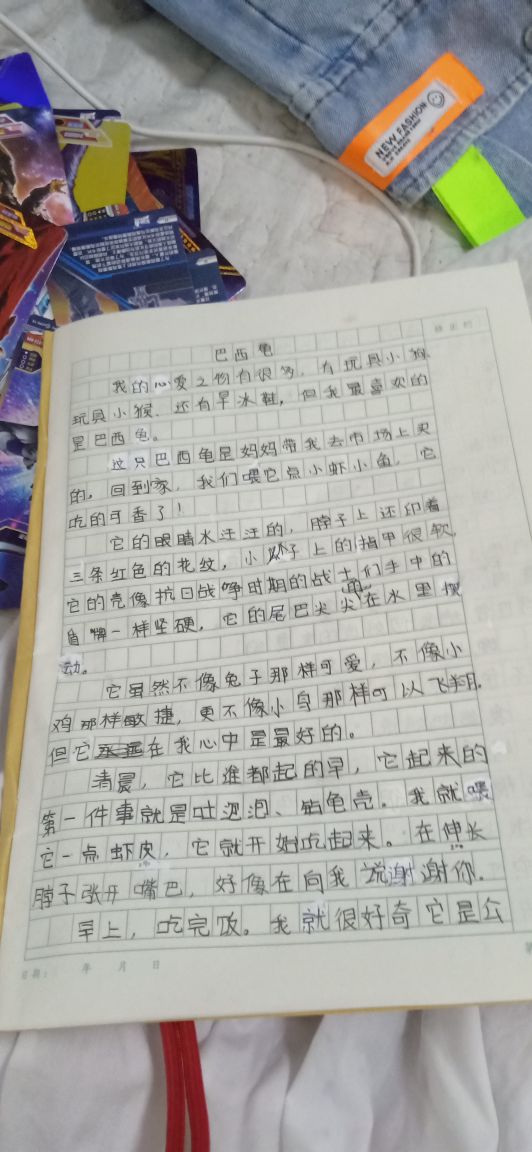 NEW FASHION
巴西龟
我的心爱之物有很多，有玩具小狗、
玩具小猴、还有旱冰鞋，但我最喜欢的
是巴西龟。
这只巴西龟是妈妈带我去市场上买
的，回到家，我们喂它点小虾小鱼，它
吃的可香了！
它的眼睛水汪汪的，脖子上还印着
三条红色的花纹，小爪子上的指甲很软，
它的壳像抗日战争时期的战士们手中的
盾牌一样坚硬，它的尾巴尖尖在水里摆
动。
它虽然不像兔子那样可爱，不像小
鸡那样敏捷，更不像小鸟那样可以飞翔，
但它在我心中是最好的。
清晨，它比谁都起的早，它起来的
第一件事就是吐泡泡、钻龟壳。我就喂
它一点虾皮，它就开始吃起来。在伸长
脖子张开嘴巴，好像在向我说谢谢你。
早上，吃完饭。我就很好奇它是公
日期： 年 月 日